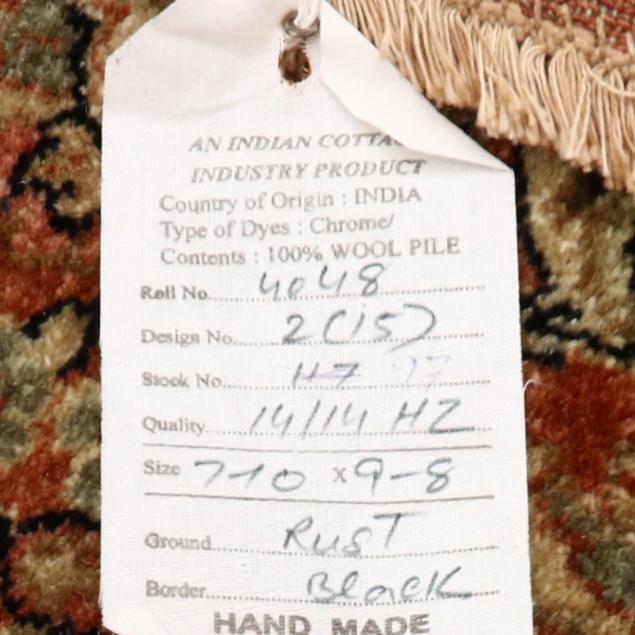 AN INDIAN COTTA
INDUSTRY PRODUCT
Country of Origin : INDIA
Type of Dyes : Chrome/
Contents : 100% WOOL PILE
Roll No. 4048
Design No. 2(15)
Stock No.
Quality 14/14 HZ
Size 7-10 x 9-8
Ground RUST
Border Black
HAND MADE